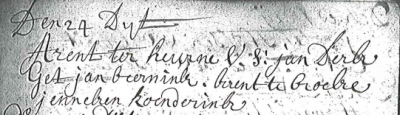 Den 24 Dyt
Arent ter heurne V. S: jan Derk
Get jan beernink. berent te broeke
jenneken koenderink